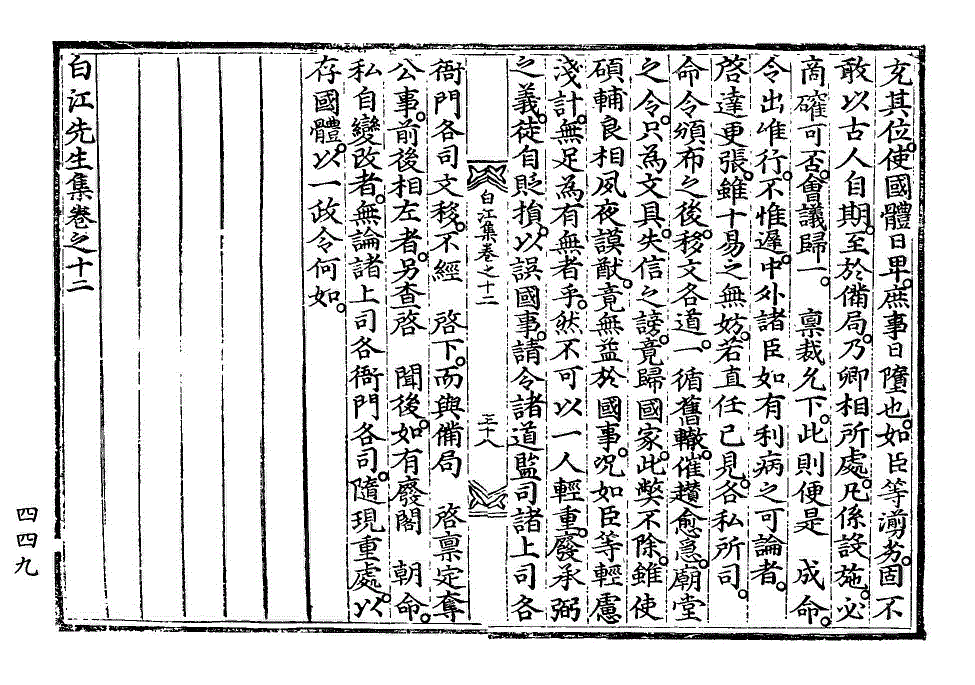 充其位。使國體日卑。庶事日隳也。如臣等湔劣。固不
敢以古人自期。至於備局。乃卿相所處。凡係設施。必
商確可否。會議歸一。 稟裁允下。此則便是 成命。
令出惟行。不惟遲。中外諸臣如有利病之可論者。
啓達更張。雖十易之無妨。若直任己見。各私所司。
命令頒布之後。移文各道。一循舊轍。催趲愈急。廟堂
之令。只爲文具。失信之謗。竟歸國家。此弊不除。雖使
碩輔良相夙夜謨猷。竟無益於國事。況如臣等輕慮
淺計。無足爲有無者乎。然不可以一人輕重。廢承弼
之義。徒自貶損。以誤國事。請令諸道監司諸上司各
白江集卷之十二
三十八
衙門各司文移。不經 啓下。而與備局 啓稟定奪
公事。前後相左者。另查啓 聞後。如有廢閣 朝命。
私自變改者。無論諸上司各衙門各司。隨現重處。以
存國體。以一政令何如。
白江先生集卷之十二
四四九